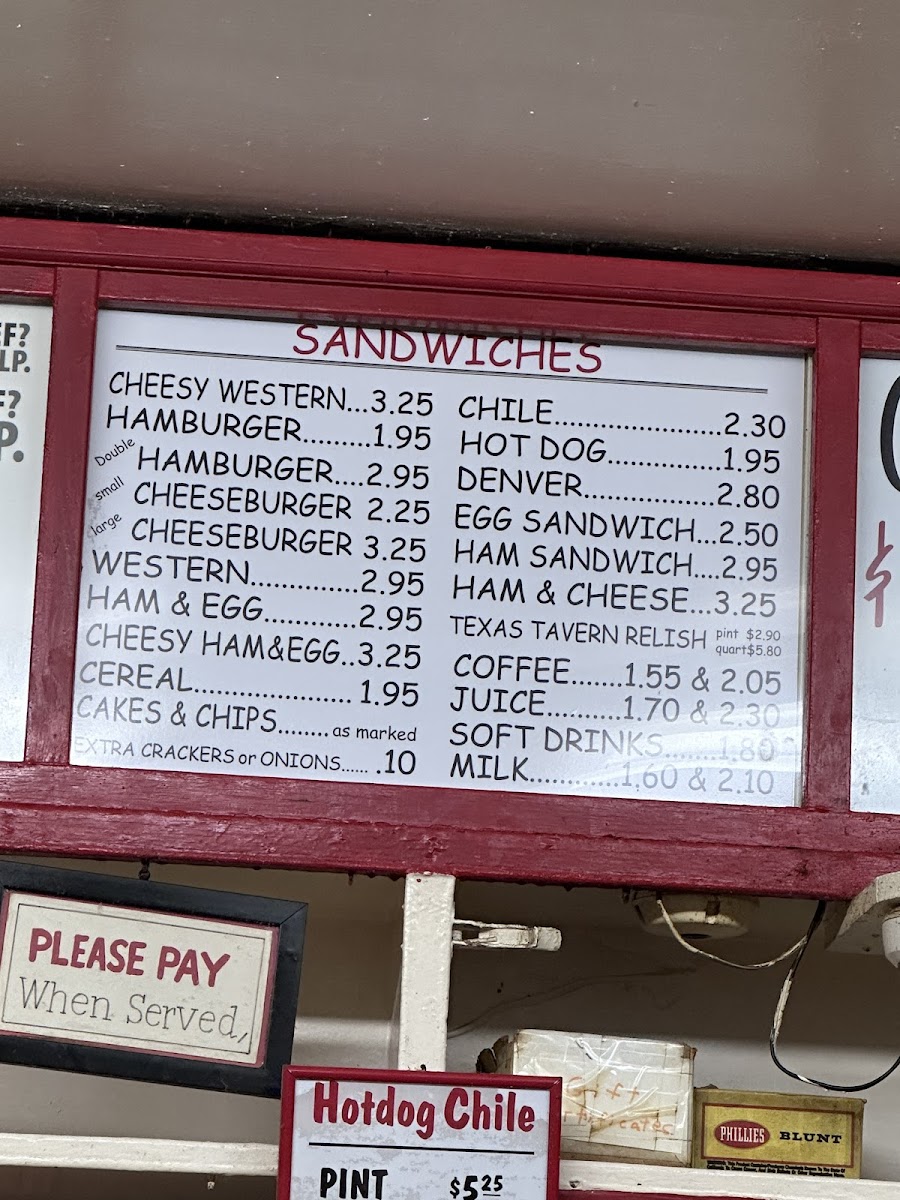 EF?
LP.
F?
P.
SANDWICHES
CHEESY WESTERN...3.25
HAMBURGER.........1.95
Double HAMBURGER....2.95
small CHEESEBURGER 2.25
large CHEESEBURGER 3.25
WESTERN............2.95
HAM & EGG..........2.95
CHEESY HAM&EGG..3.25
CEREAL................... 1.95
CAKES & CHIPS......... as marked
EXTRA CRACKERS or ONIONS...... .10
CHILE.....................2.30
HOT DOG..............1.95
DENVER.................2.80
EGG SANDWICH...2.50
HAM SANDWICH....2.95
HAM & CHEESE...3.25
TEXAS TAVERN RELISH pint $2.90
quart$5.80
COFFEE.......1.55 & 2.05
JUICE..........1.70 & 2.30
SOFT DRINKS.......1.80
MILK............1.60 & 2.10
$
PLEASE PAY
When Served,
Hotdog Chile
PINT $5.25
Gift
PHILLIES BLUNT